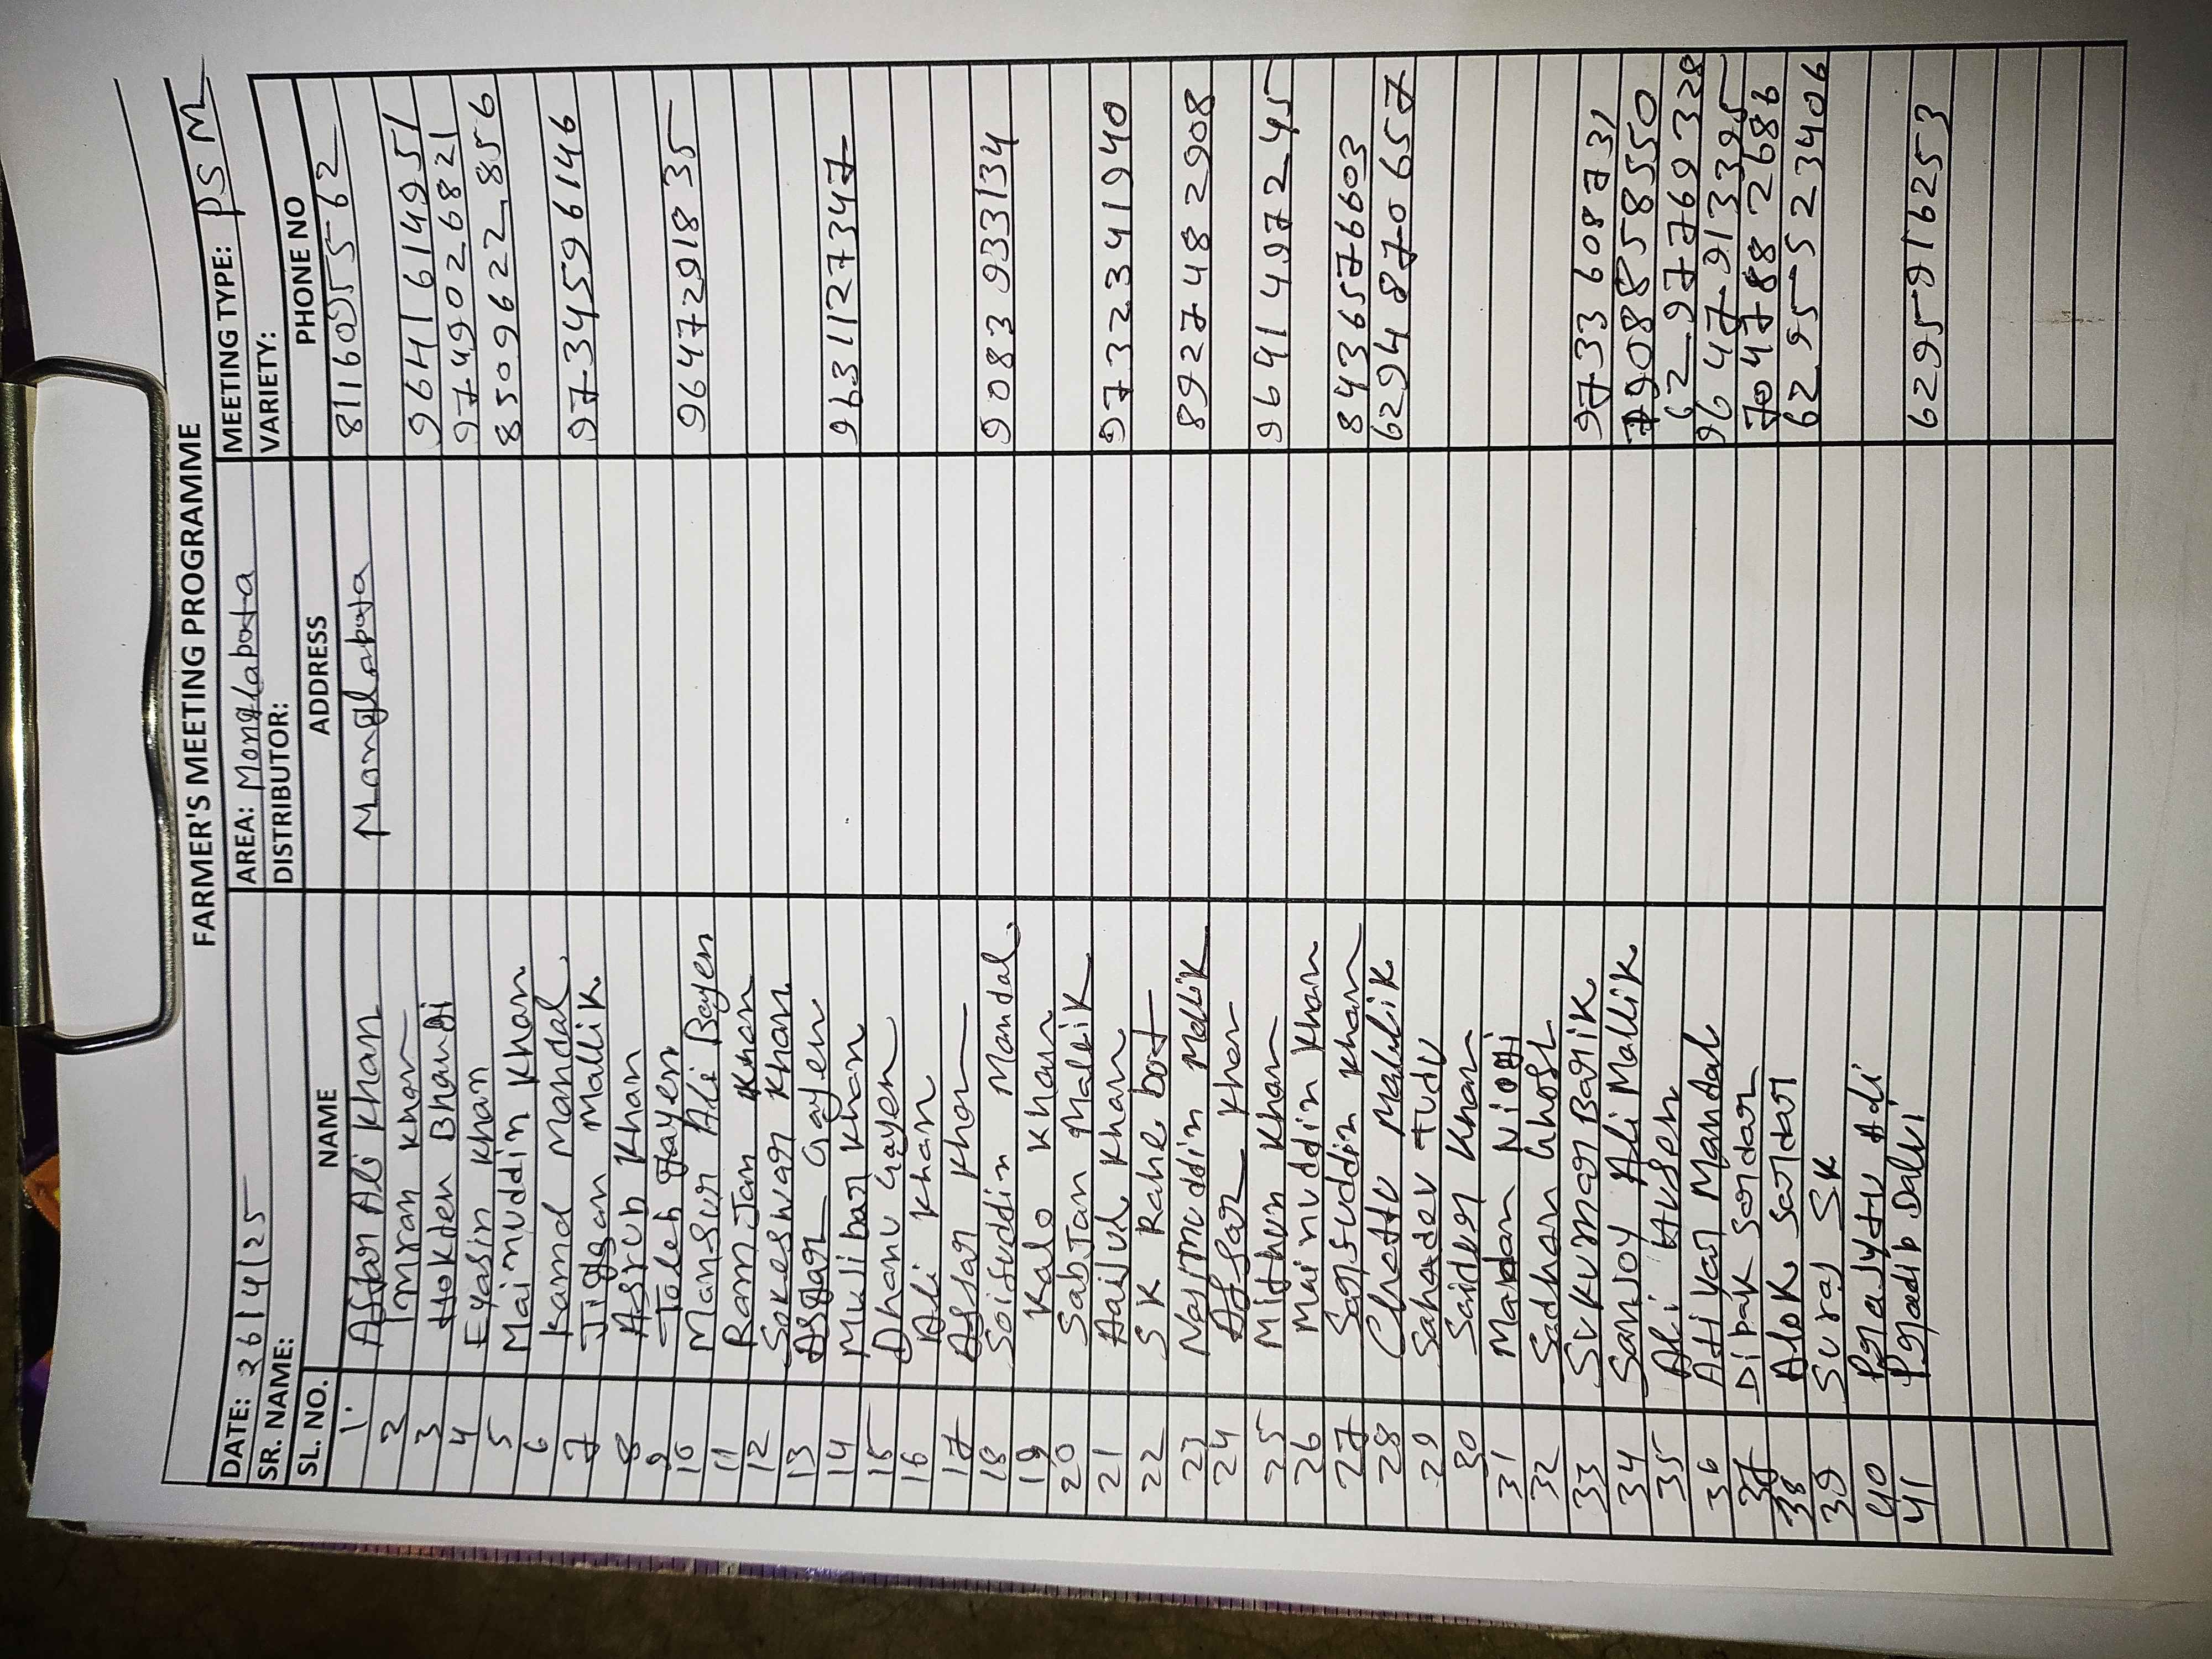 FARMER'S MEETING PROGRAMME
DATE: 26/4/25 AREA: Monglapota MEETING TYPE: PSM
SR. NAME: DISTRIBUTOR: VARIETY:
SL. NO. NAME ADDRESS PHONE NO
1. Afsar Ali Khan Monglapota 8116055562
2 Imran Khan
3 Hokden Bhangi 9641614951
4 Eyasin Khan 9749026821
5 Mainuddin Khan 8509622856
6 Kamal Mandal
7 Jiggan Mallik 9734596146
8 Asrub Khan
9 Taleb Gayen
10 Mansur Ali Bayen 9647291835
11 Ram Jan Khan
12 Sokeswar Khan
13 Asgar Gayen
14 Mujibar Khan 9631127347
15 Dhanu Gayen
16 Ali Khan
17 Afsar Khan
18 Soifuddin Mandal 9083933134
19 Kalo Khan
20 Sabjan Mallik
21 Aaijul Khan 9732341940
22 SK Rahebot
23 Najmuddin Mallik 8927482908
24 Afsar Khan
25 Mithun Khan 9641497245
26 Mainuddin Khan
27 Sarsuddin Khan 8436576603
28 Chottu Mallik 6294870657
29 Sahadev Tudu
30 Saidul Khan
31 Madan Niogi
32 Sadhan Ghosh
33 Sukumar Barik 9733608731
34 Sanjoy Ali Mallik 7908858550
35 Ali Husen 6297769328
36 Atiyar Mandal 9647913395
37 Dipak Sardar 7047882686
38 Alok Sardar 6295523406
39 Suraj SK
40 Adi
41 Pradip Dalvi 6295916253